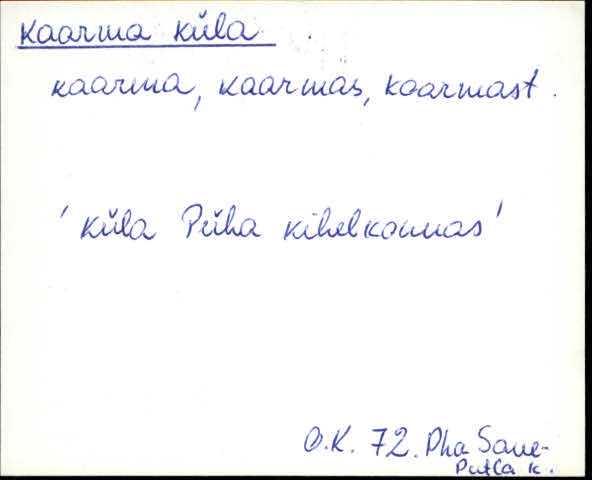 Kaarma küla
kaarma, kaarmas, kaarmast.
' küla Püha kihelkonnas'
O.K. 72. Pha Saue-
Putla k.